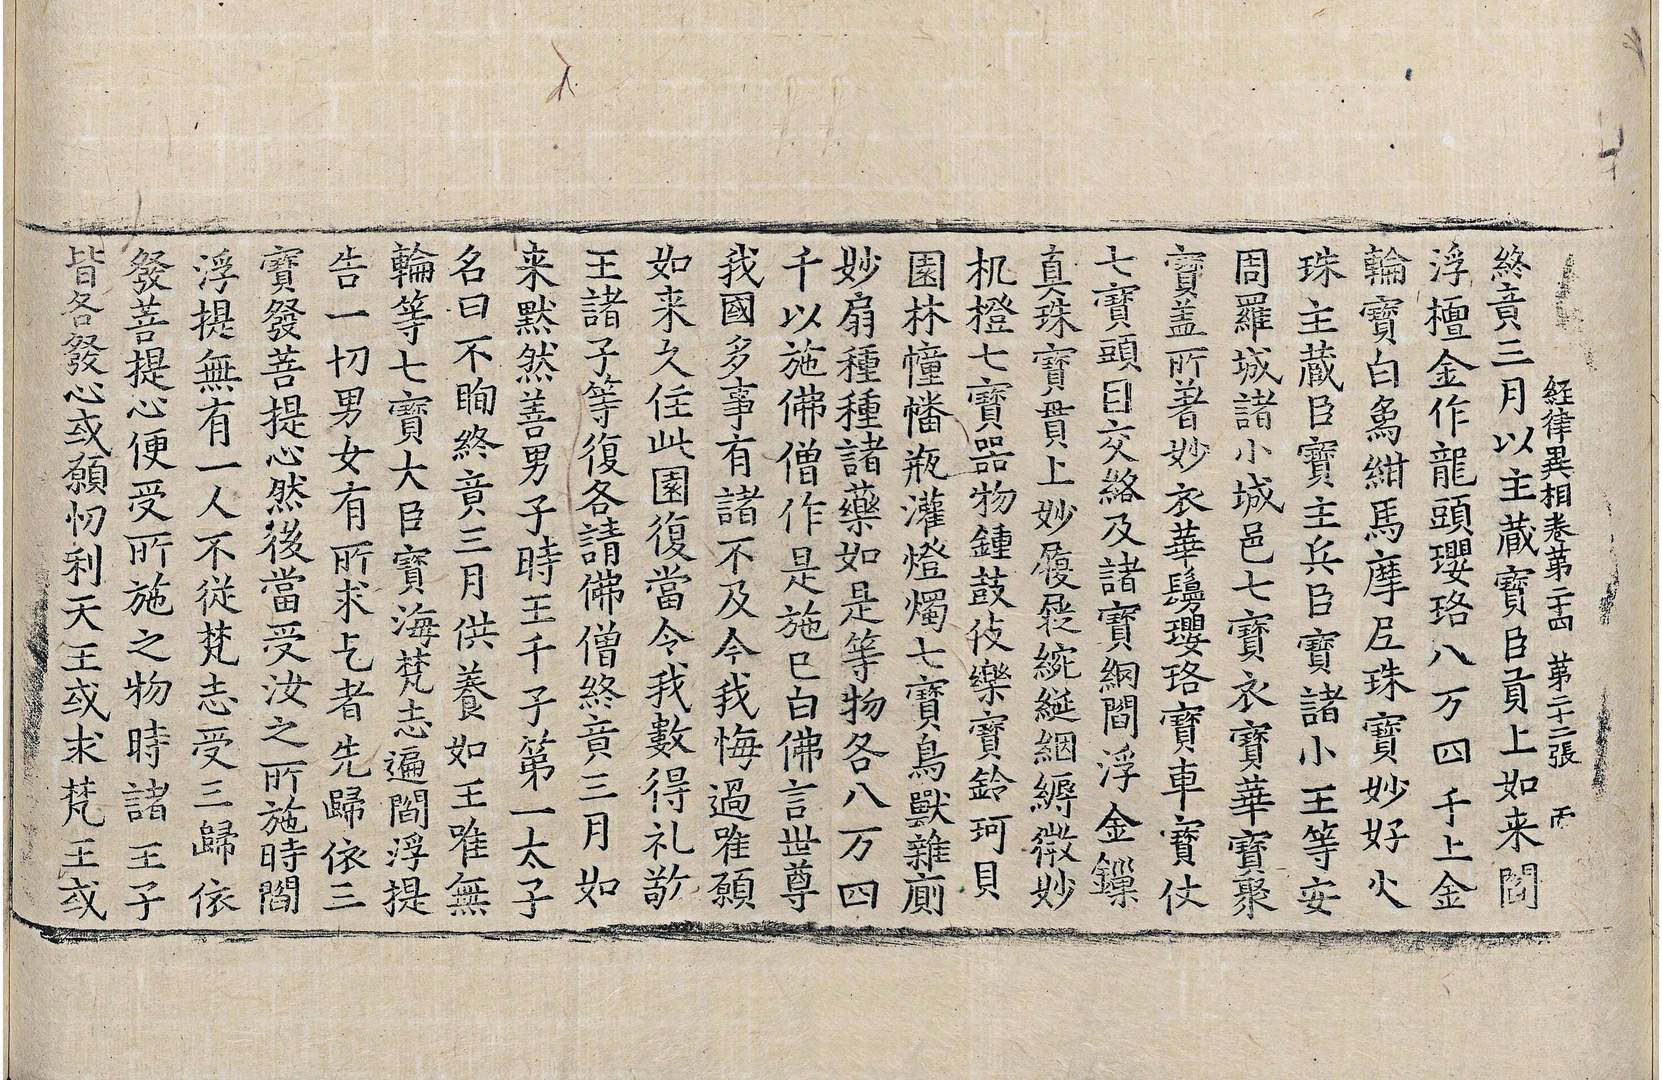 経律異相卷第二十四 第二十二張 丙
終竟三月以主藏寶臣貢上如来閻
浮檀金作龍頭瓔珞八万四千上金
輪寶白象紺馬摩尼珠寶妙好火
珠主藏臣寶主兵臣寶諸小王等安
周羅城諸小城邑七寶衣寶華寶聚
寶盖所著妙衣華鬘瓔珞寶車寶仗
七寶頭目交絡及諸寶網閻浮金鏁
真珠寶貫上妙履屣綩綖絪縟微妙
机橙七寶器物鍾鼓伎樂寶鈴珂貝
園林幢幡瓶灌燈燭七寶鳥獸雜廁
妙扇種種諸藥如是等物各八万四
千以施佛僧作是施已白佛言世尊
我國多事有諸不及今我悔過唯願
如来久住此園復當令我數得礼敬
王諸子等復各請佛僧終竟三月如
来默然善男子時王千子第一太子
名曰不眴終竟三月供養如王唯無
輪等七寶大臣寶海梵志遍閻浮提
告一切男女有所求乞者先歸依三
寶發菩提心然後當受汝之所施時閻
浮提無有一人不従梵志受三歸依
發菩提心便受所施之物時諸王子
皆各發心或願忉利天王或求梵王或